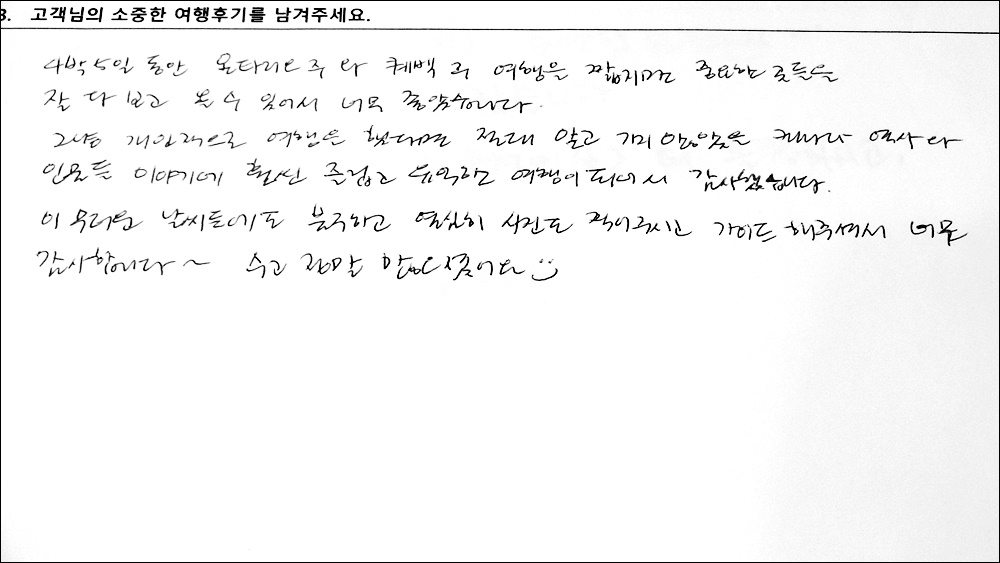 3. 고객님의 소중한 여행후기를 남겨주세요.
4박5일 동안 온타리오주와 퀘벡주 여행은 짧지만 중요한 곳들을
잘 다 보고 올 수 있어서 너무 좋았습니다.
그냥 개인적으로 여행을 했다면 절대 알고 가지 않았을 캐나다 역사와
인물들 이야기에 훨씬 즐겁고 유익한 여행이 되어서 감사했습니다.
이 무더운 날씨들에도 분주하고 열심히 사진도 찍어주시고 가이드 해주셔서 너무
감사합니다~ 수고 정말 많으셨어요